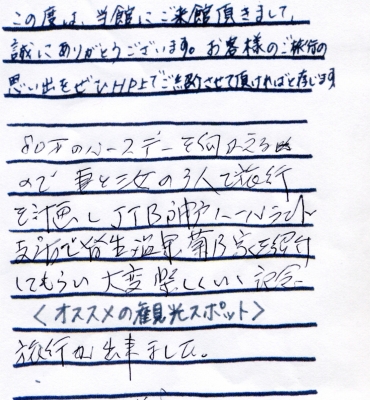 この度は、当館にご来館頂きまして、
誠にありがとうございます。お客様のご旅行の
思い出をぜひHP上でご紹介させて頂ければと存じます
80才のバースデーを何かえる
ので 妻と三女の3人で旅行
を計画し JTB神戸ハーバーランド
支店で皆生温泉 菊乃家を紹介
してもらい 大変楽しくいい記念
＜オススメの観光スポット＞
旅行が出来ました。